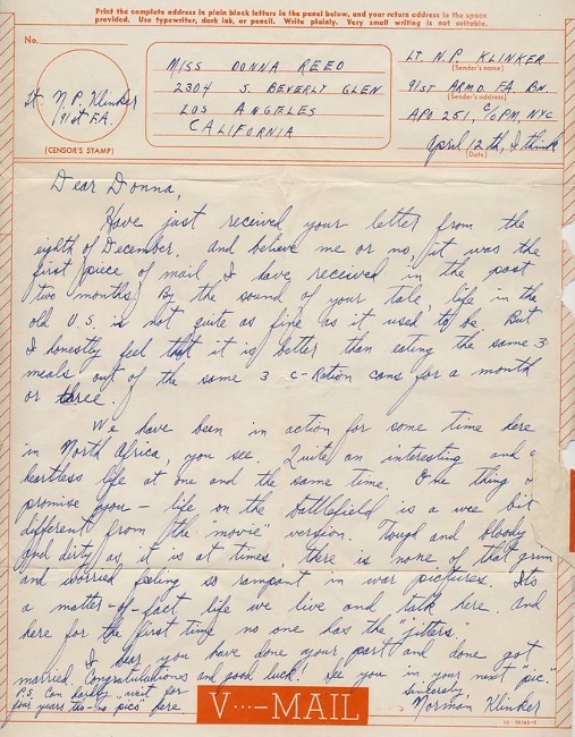 Print the complete address in plain block letters in the panel below, and your return address in the space
provided. Use typewriter, dark ink, or pencil. Write plainly. Very small writing is not suitable.
No.
Lt. N.P. Klinker
91st F.A.
(CENSOR'S STAMP)
MISS DONNA REED
2304 S. BEVERLY GLEN
LOS ANGELES
CALIFORNIA
LT. N.P. KLINKER
(Sender's name)
91ST ARMD. FA. BN.
(Sender's address)
APO 251, C/O PM, NYC
April 12th, I think
(Date)
Dear Donna,
Have just received your letter from the
eighth of December, and believe me or no, it was the
first piece of mail I have received in the past
two months. By the sound of your tale, life in the
old U.S. is not quite as fine as it used to be. But
I honestly feel that it is better than eating the same 3
meals out of the same 3 C-Ration cans for a month
or three.
We have been in action for some time here
in North Africa, you see. Quite an interesting and a
heartless life at one and the same time. One thing I
promise you - life on the battlefield is a wee bit
different from the "movie" version. Tough and bloody
and dirty as it is at times there is none of that grim
and worried feeling so rampant in war pictures. Its
a matter-of-fact life we live and talk here. And
here for the first time no one has the "jitters".
I hear you have done your part and done got
married. Congratulations and good luck! See you in your next "pic".
Sincerely,
Norman Klinker
P.S. Can hardly wait for
four years tho - no "pics" here
V···—MAIL